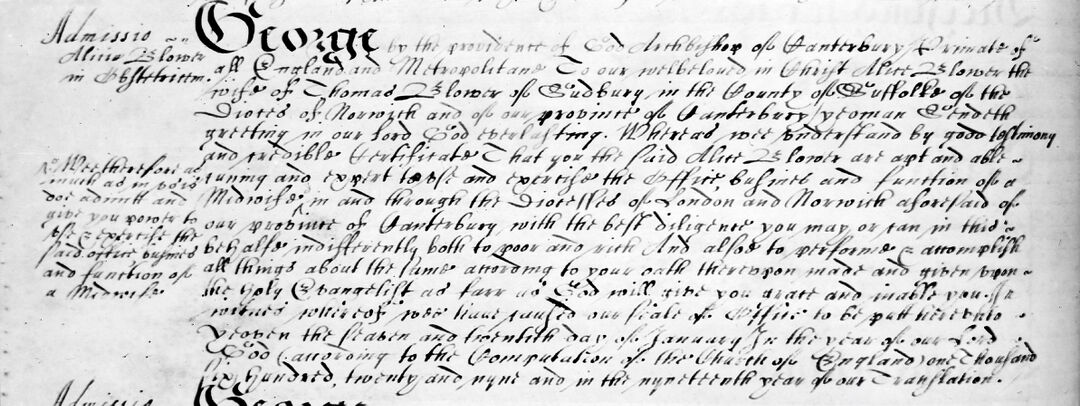 Admissio
Alicie Blower
in Obstetricem.
George by the providence of God Archbishop of Canterbury Primate of
all England and Metropolitane To our welbeloved in Christ Alice Blower the
wife of Thomas Blower of Sudbury in the County of Suffolke of the
Dioces of Norwich and of our province of Canterbury yeoman Sendeth
greeting in our lord God everlasting. Whereas wee understand by good testimony
and credible Certificate That you the said Alice Blower are apt and able
cuning and expert to use and exercise the Office, busines and function of a
Midwife in and through the Diocesses of London and Norwich aforesaid of
our province of Canterbury, with the best diligence you may or can in this
behalfe indifferently both to poor and rich And alsoe to performe & accomplish
all things about the same according to your oath thereupon made and given upon
the Holy Evangelist as farr as God will give you grace and inable you. In
witnes whereof wee have caused our seale of Office to be putt hereunto
yeoven the seaven and twentith day of January In the year of our Lord
God (according to the Computation of the Church of England) one Thousand
six hundred, twenty and nyne and in the nyneteenth year of our Translation.
Wee therefore as
much as in us is
doe admitt and
give you power to
use & exercise the
said office busines
and function of
a Midwife
Admissio
George